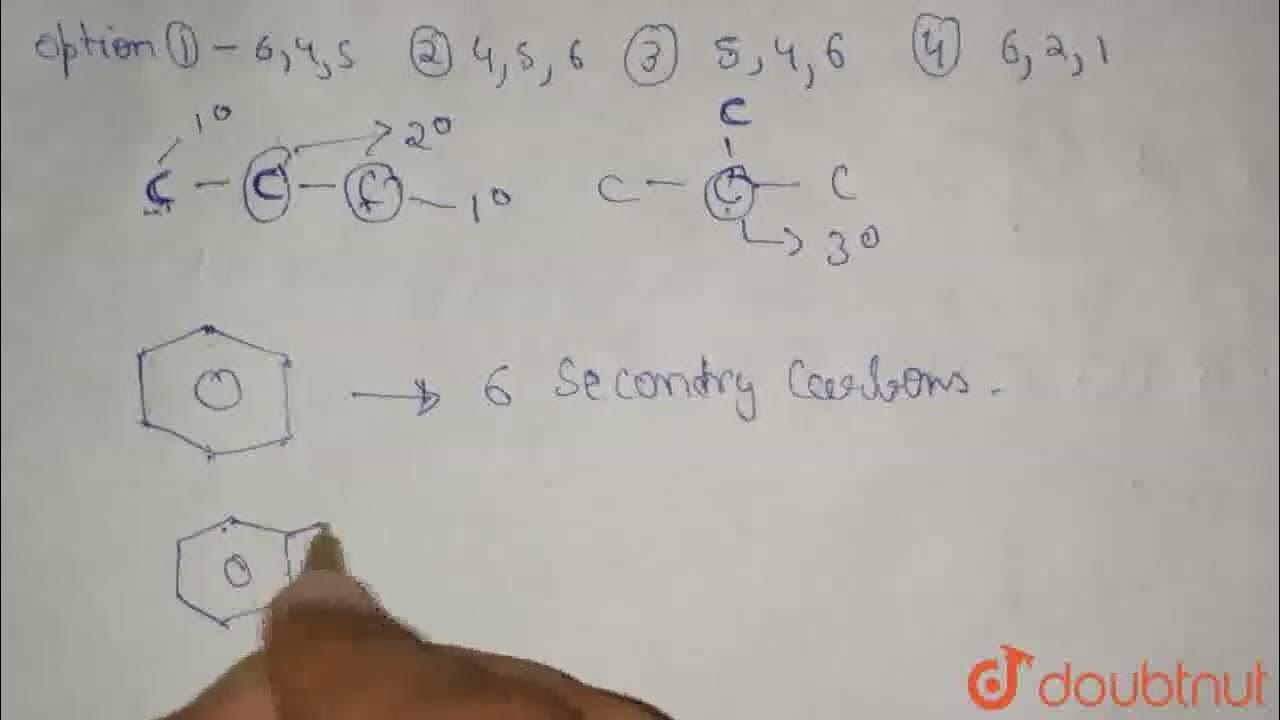 option ① - 6,4,5 ② 4,5,6 ③ 5,4,6 ④ 6,2,1
1° 2° C
C - C - C - 1° C - C - C
3°
→ 6 Secondry Carbons.
doubtnut